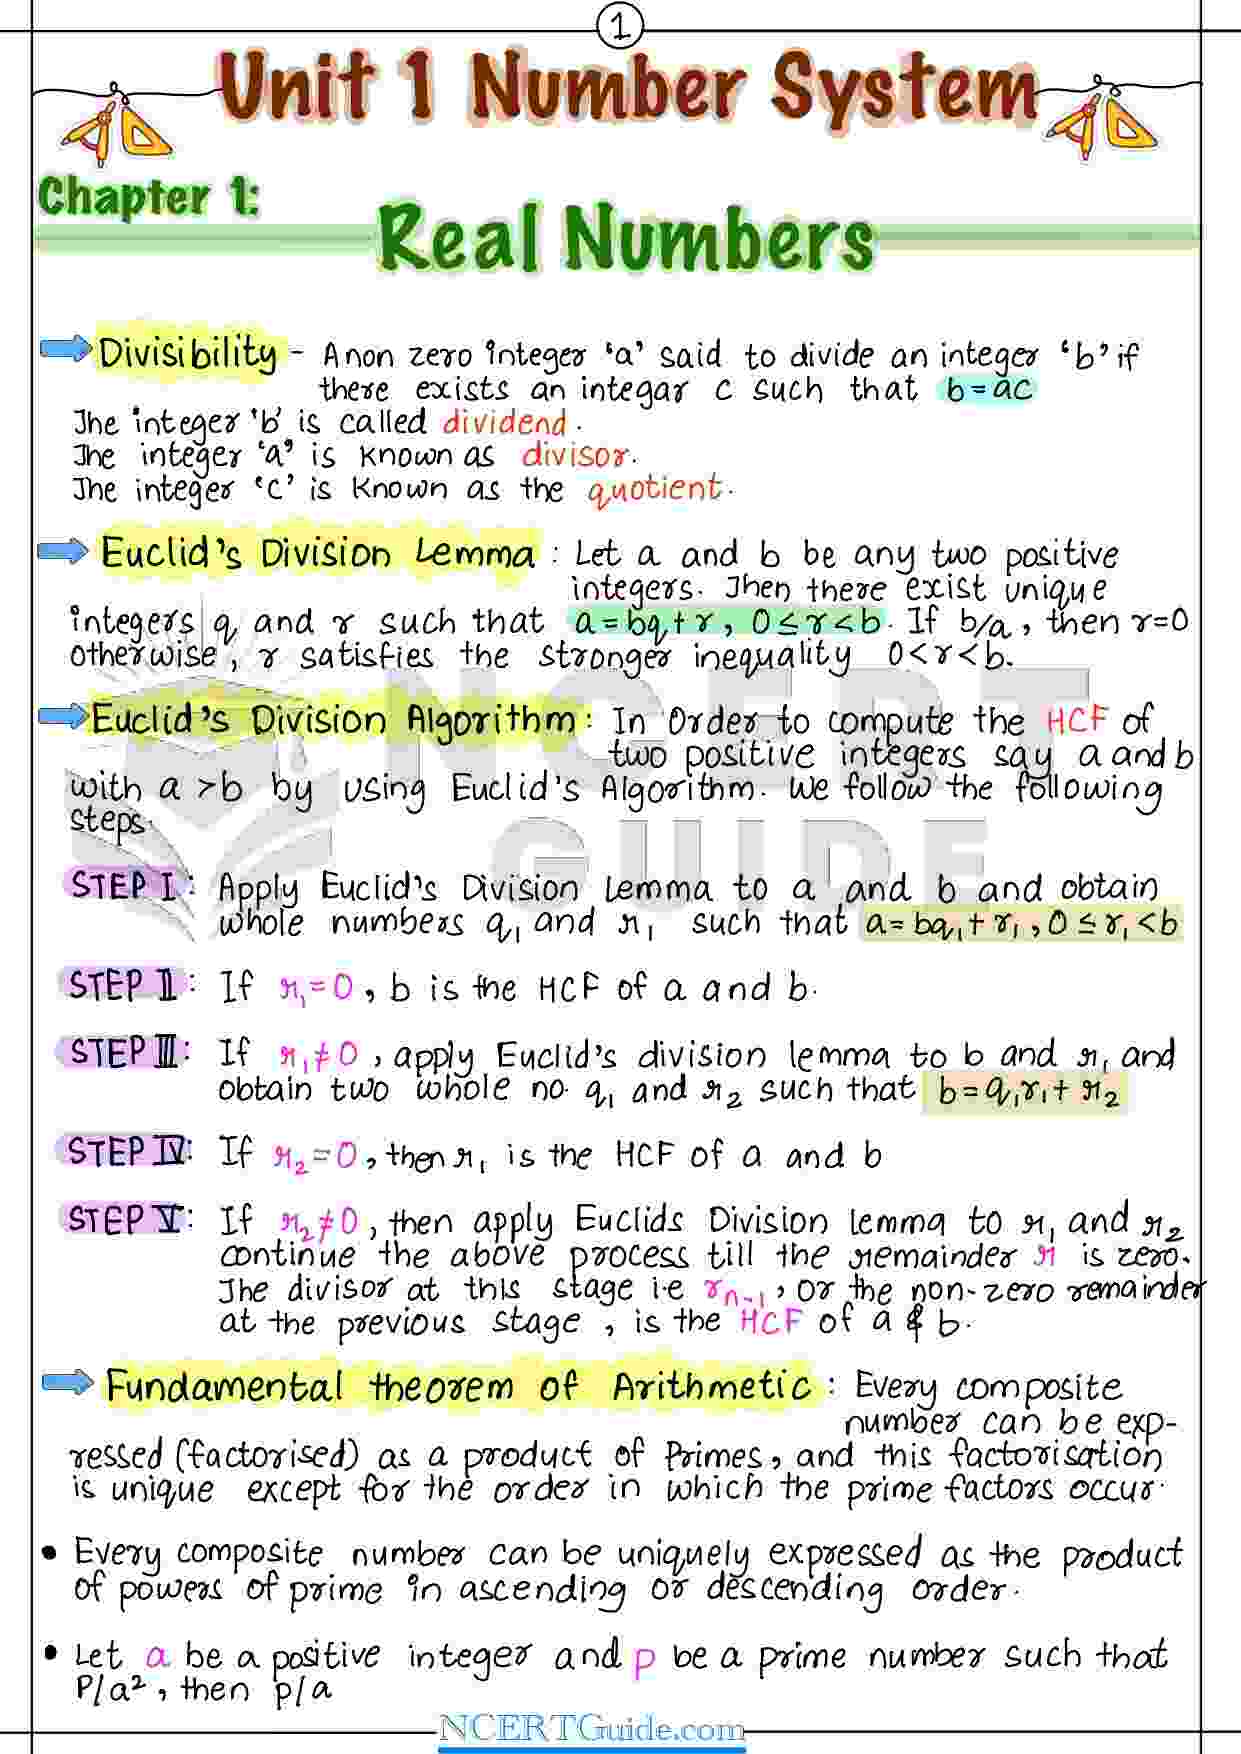 1
Unit 1 Number System
Chapter 1:
Real Numbers
Divisibility - A non zero integer 'a' said to divide an integer 'b' if
there exists an integar c such that b=ac
The integer 'b' is called dividend.
The integer 'a' is known as divisor.
The integer 'c' is known as the quotient.
Euclid's Division Lemma : Let a and b be any two positive
integers. Then there exist unique
integers q and r such that a=bq+r, 0≤r<b. If b/a, then r=0
Otherwise, r satisfies the stronger inequality 0<r<b.
Euclid's Division Algorithm: In Order to compute the HCF of
two positive integers say a and b
with a >b by using Euclid's Algorithm. We follow the following
steps.
STEP I : Apply Euclid's Division Lemma to a and b and obtain
whole numbers q₁ and r₁ such that a=bq₁+r₁, 0≤r₁<b
STEP II : If r₁=0, b is the HCF of a and b.
STEP III : If r₁≠0, apply Euclid's division lemma to b and r₁ and
obtain two whole no. q₁ and r₂ such that b=q₁r₁+r₂
STEP IV: If r₂=0, then r₁ is the HCF of a and b
STEP V: If r₂≠0, then apply Euclids Division lemma to r₁ and r₂
continue the above process till the remainder r is zero.
The divisor at this stage i.e rₙ₋₁, or the non-zero remainder
at the previous stage, is the HCF of a & b.
Fundamental theorem of Arithmetic : Every composite
number can be exp-
ressed (factorised) as a product of Primes, and this factorisation
is unique except for the order in which the prime factors occur.
• Every composite number can be uniquely expressed as the product
of powers of prime in ascending or descending order.
• Let a be a positive integer and p be a prime number such that
P/a², then p/a
NCERT
GUIDE
NCERTGuide.com